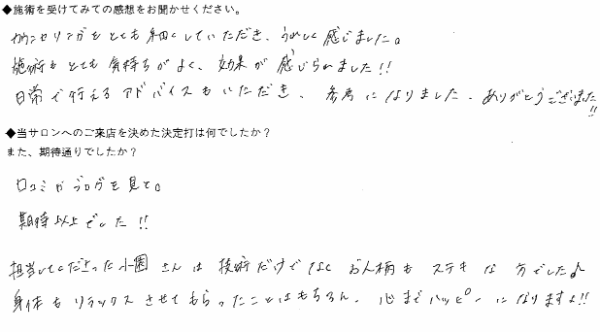 ◆施術を受けてみての感想をお聞かせください。
カウンセリングもとても細くしていただき、うれしく感じました。
施術もとても気持ちがよく、効果が感じられました!!
日常で行えるアドバイスもいただき、参考になりました。ありがとうございました!!
◆当サロンへのご来店を決めた決定打は何でしたか？
また、期待通りでしたか？
口コミやブログを見て。
期待以上でした!!
担当してくださった小園さんは技術だけでなくお人柄もステキな方でした♪
身体もリラックスさせてもらったことはもちろん、心までハッピーになりますよ!!